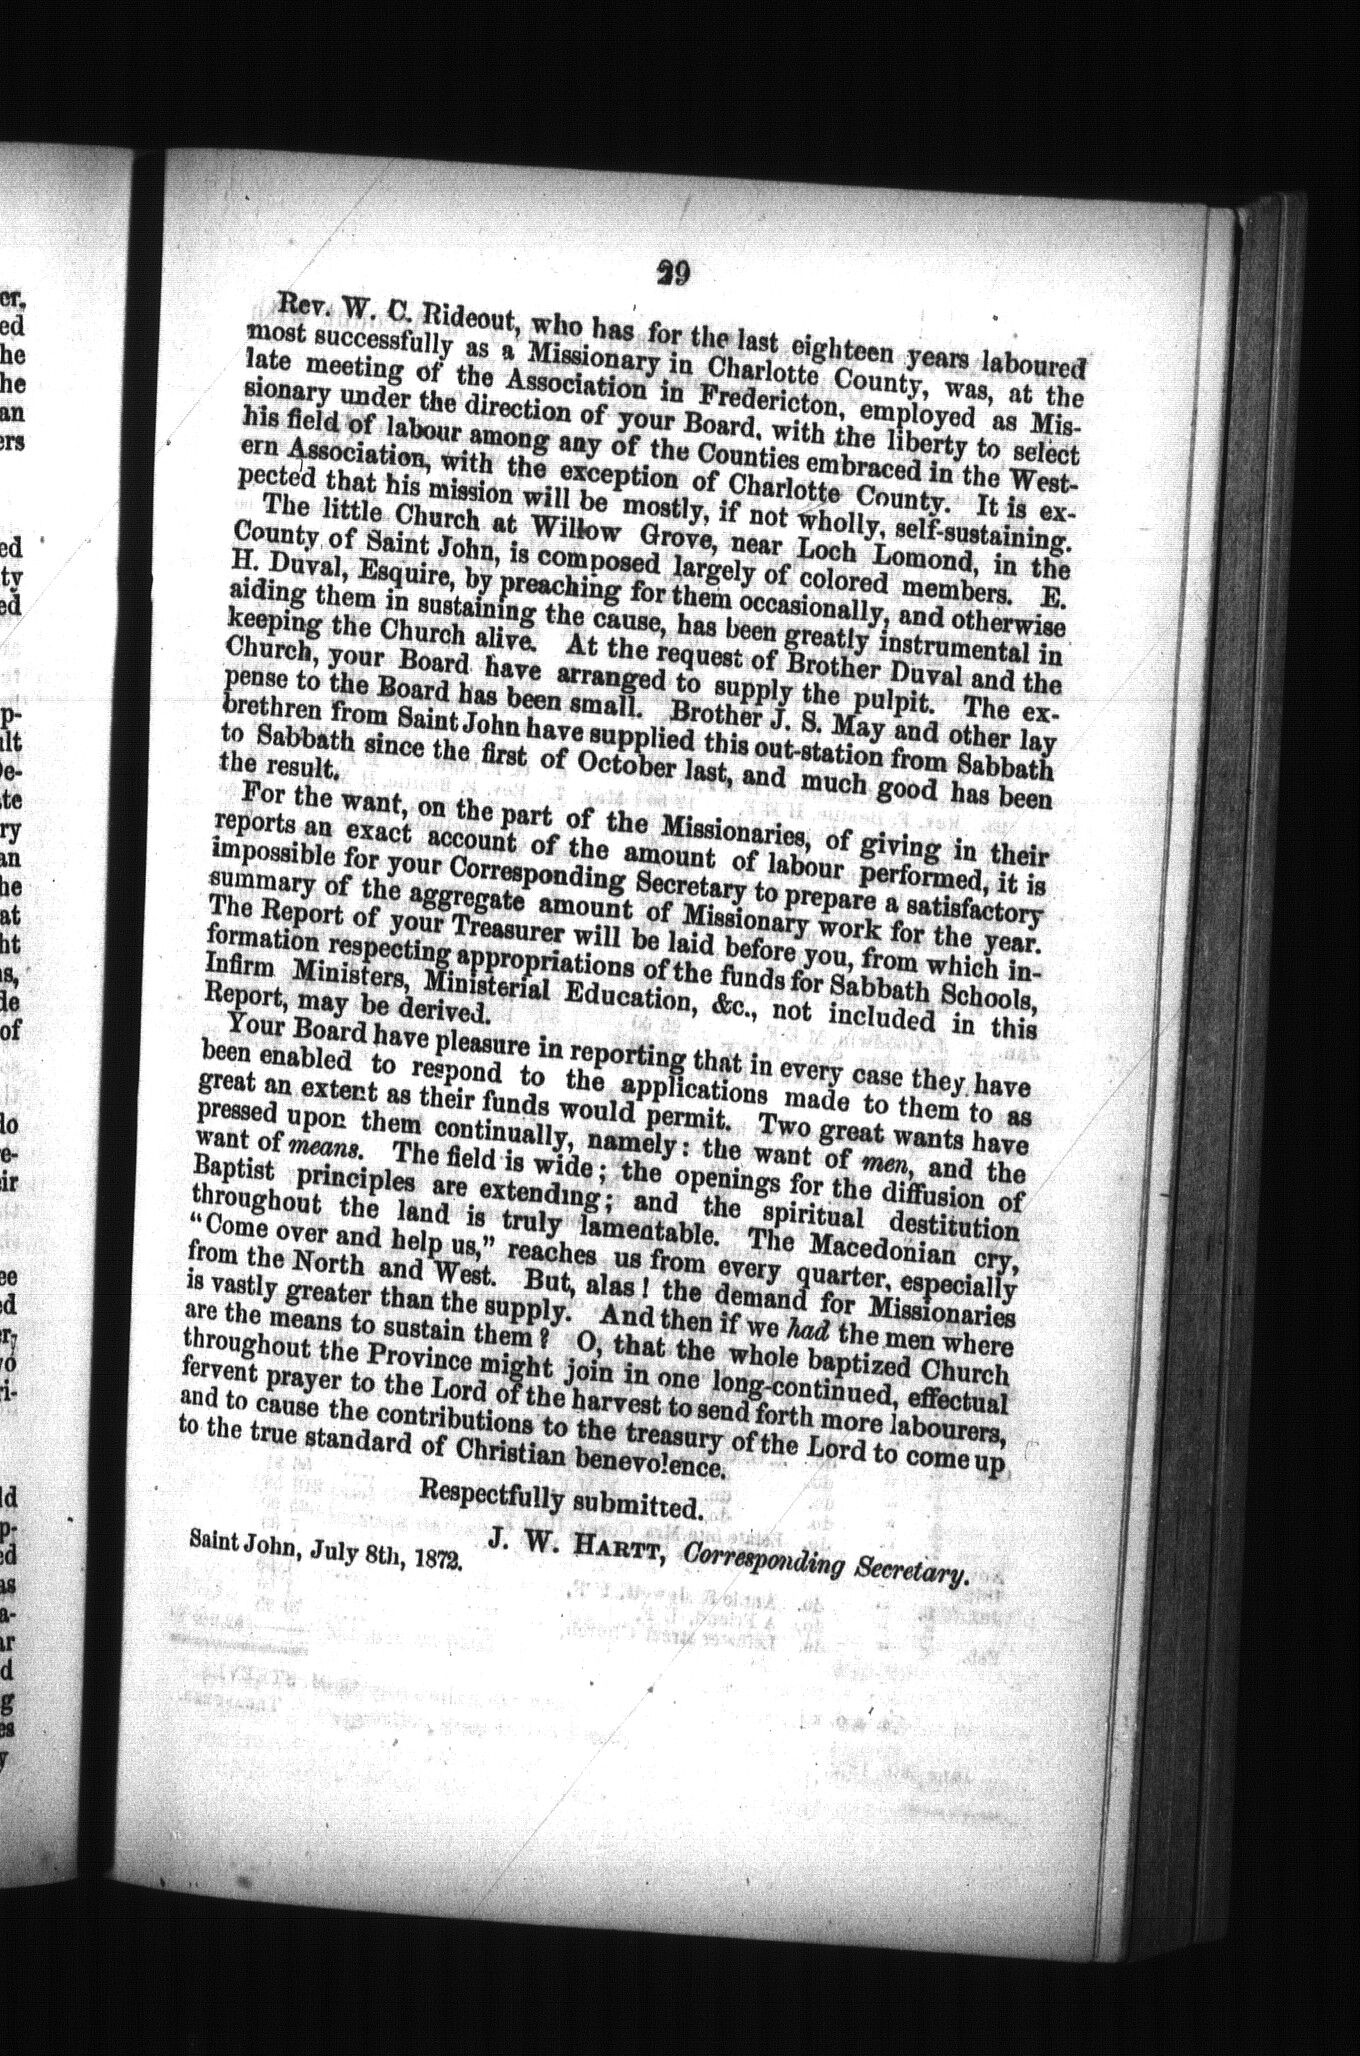 29
Rev. W. C. Rideout, who has for the last eighteen years laboured
most successfully as a Missionary in Charlotte County, was, at the
late meeting of the Association in Fredericton, employed as Mis-
sionary under the direction of your Board, with the liberty to select
his field of labour among any of the Counties embraced in the West-
ern Association, with the exception of Charlotte County. It is ex-
pected that his mission will be mostly, if not wholly, self-sustaining.
The little Church at Willow Grove, near Loch Lomond, in the
County of Saint John, is composed largely of colored members. E.
H. Duval, Esquire, by preaching for them occasionally, and otherwise
aiding them in sustaining the cause, has been greatly instrumental in
keeping the Church alive. At the request of Brother Duval and the
Church, your Board have arranged to supply the pulpit. The ex-
pense to the Board has been small. Brother J. S. May and other lay
brethren from Saint John have supplied this out-station from Sabbath
to Sabbath since the first of October last, and much good has been
the result.
For the want, on the part of the Missionaries, of giving in their
reports an exact account of the amount of labour performed, it is
impossible for your Corresponding Secretary to prepare a satisfactory
summary of the aggregate amount of Missionary work for the year.
The Report of your Treasurer will be laid before you, from which in-
formation respecting appropriations of the funds for Sabbath Schools,
Infirm Ministers, Ministerial Education, &c., not included in this
Report, may be derived.
Your Board have pleasure in reporting that in every case they have
been enabled to respond to the applications made to them to as
great an extent as their funds would permit. Two great wants have
pressed upon them continually, namely: the want of men, and the
want of means. The field is wide; the openings for the diffusion of
Baptist principles are extending; and the spiritual destitution
throughout the land is truly lamentable. The Macedonian cry,
"Come over and help us," reaches us from every quarter, especially
from the North and West. But, alas! the demand for Missionaries
is vastly greater than the supply. And then if we had the men where
are the means to sustain them? O, that the whole baptized Church
throughout the Province might join in one long-continued, effectual
fervent prayer to the Lord of the harvest to send forth more labourers,
and to cause the contributions to the treasury of the Lord to come up
to the true standard of Christian benevolence.
Respectfully submitted.
J. W. HARTT, Corresponding Secretary.
Saint John, July 8th, 1872.